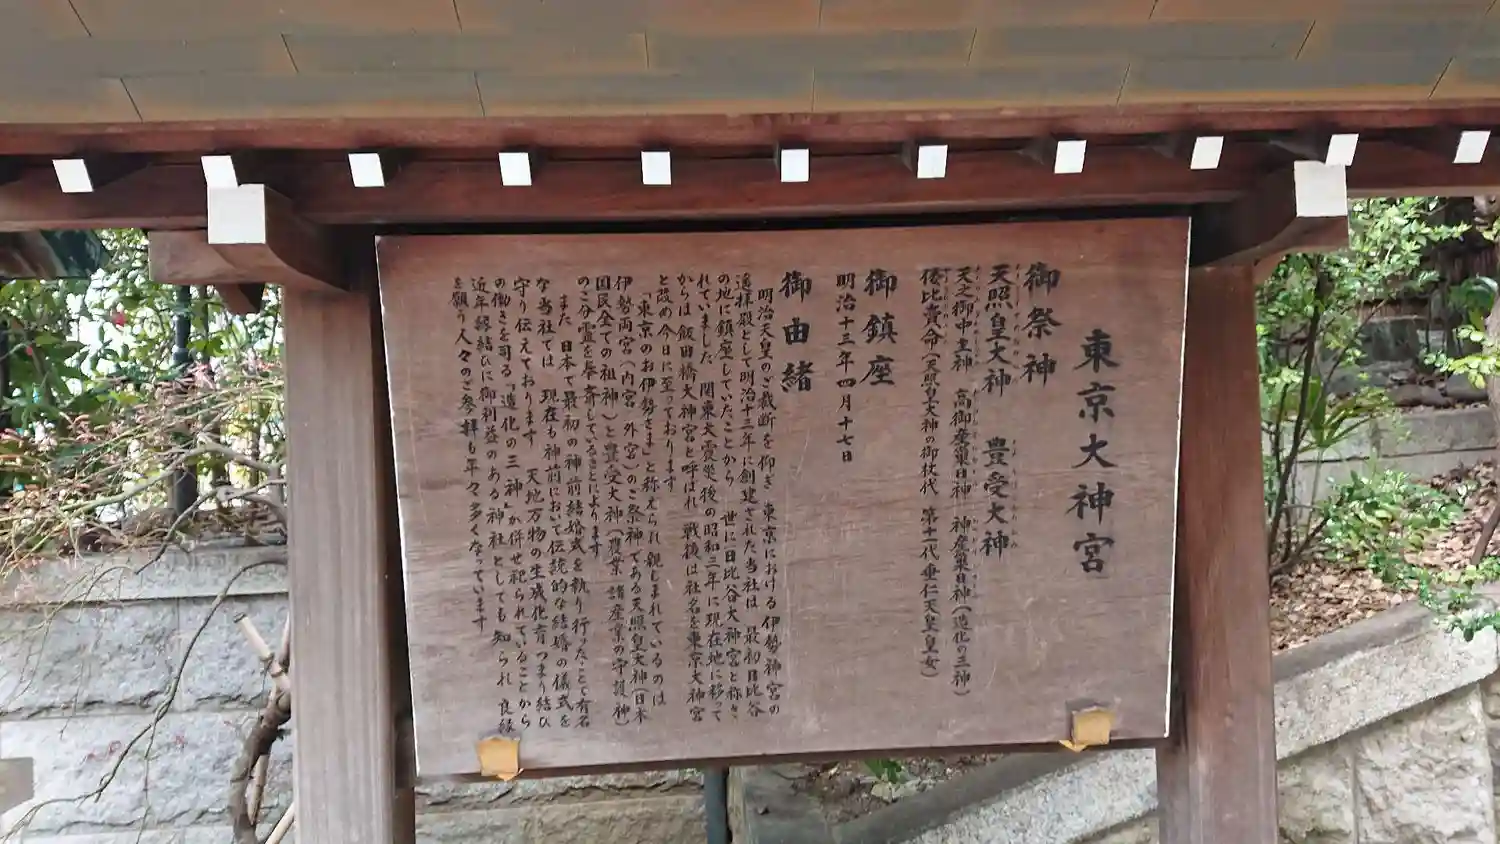 東京大神宮
御祭神
天照皇大神 豊受大神
天之御中主神 高御産巣日神 神産巣日神(造化の三神)
倭比賣命(天照皇大神の御杖代 第十一代垂仁天皇皇女)
御鎮座
明治十三年四月十七日
御由緒
明治天皇のご裁断を仰ぎ 東京における伊勢神宮の
遙拝殿として明治十三年に創建された当社は 最初日比谷
の地に鎮座していたことから 世に日比谷大神宮と称さ
れていました 関東大震災後の昭和三年に現在地に移って
からは飯田橋大神宮と呼ばれ 戦後は社名を東京大神宮
と改め今日に至っております
「東京のお伊勢さま」と称えられ親しまれているのは
伊勢両宮(内宮 外宮)のご祭神である天照皇大神(日本
国民全ての祖神)と豊受大神(農業 諸産業の守護神)
のご分霊を奉斎していることによります
また 日本で最初の神前結婚式を執り行ったことで有名
な当社では 現在も神前において伝統的な結婚の儀式を
守り伝えております 天地万物の生成化育つまり結び
の働きを司る「造化の三神」が併せ祀られていることから
近年縁結びに御利益のある神社としても知られ 良縁
を願う人々のご参拝も年々多くなっています